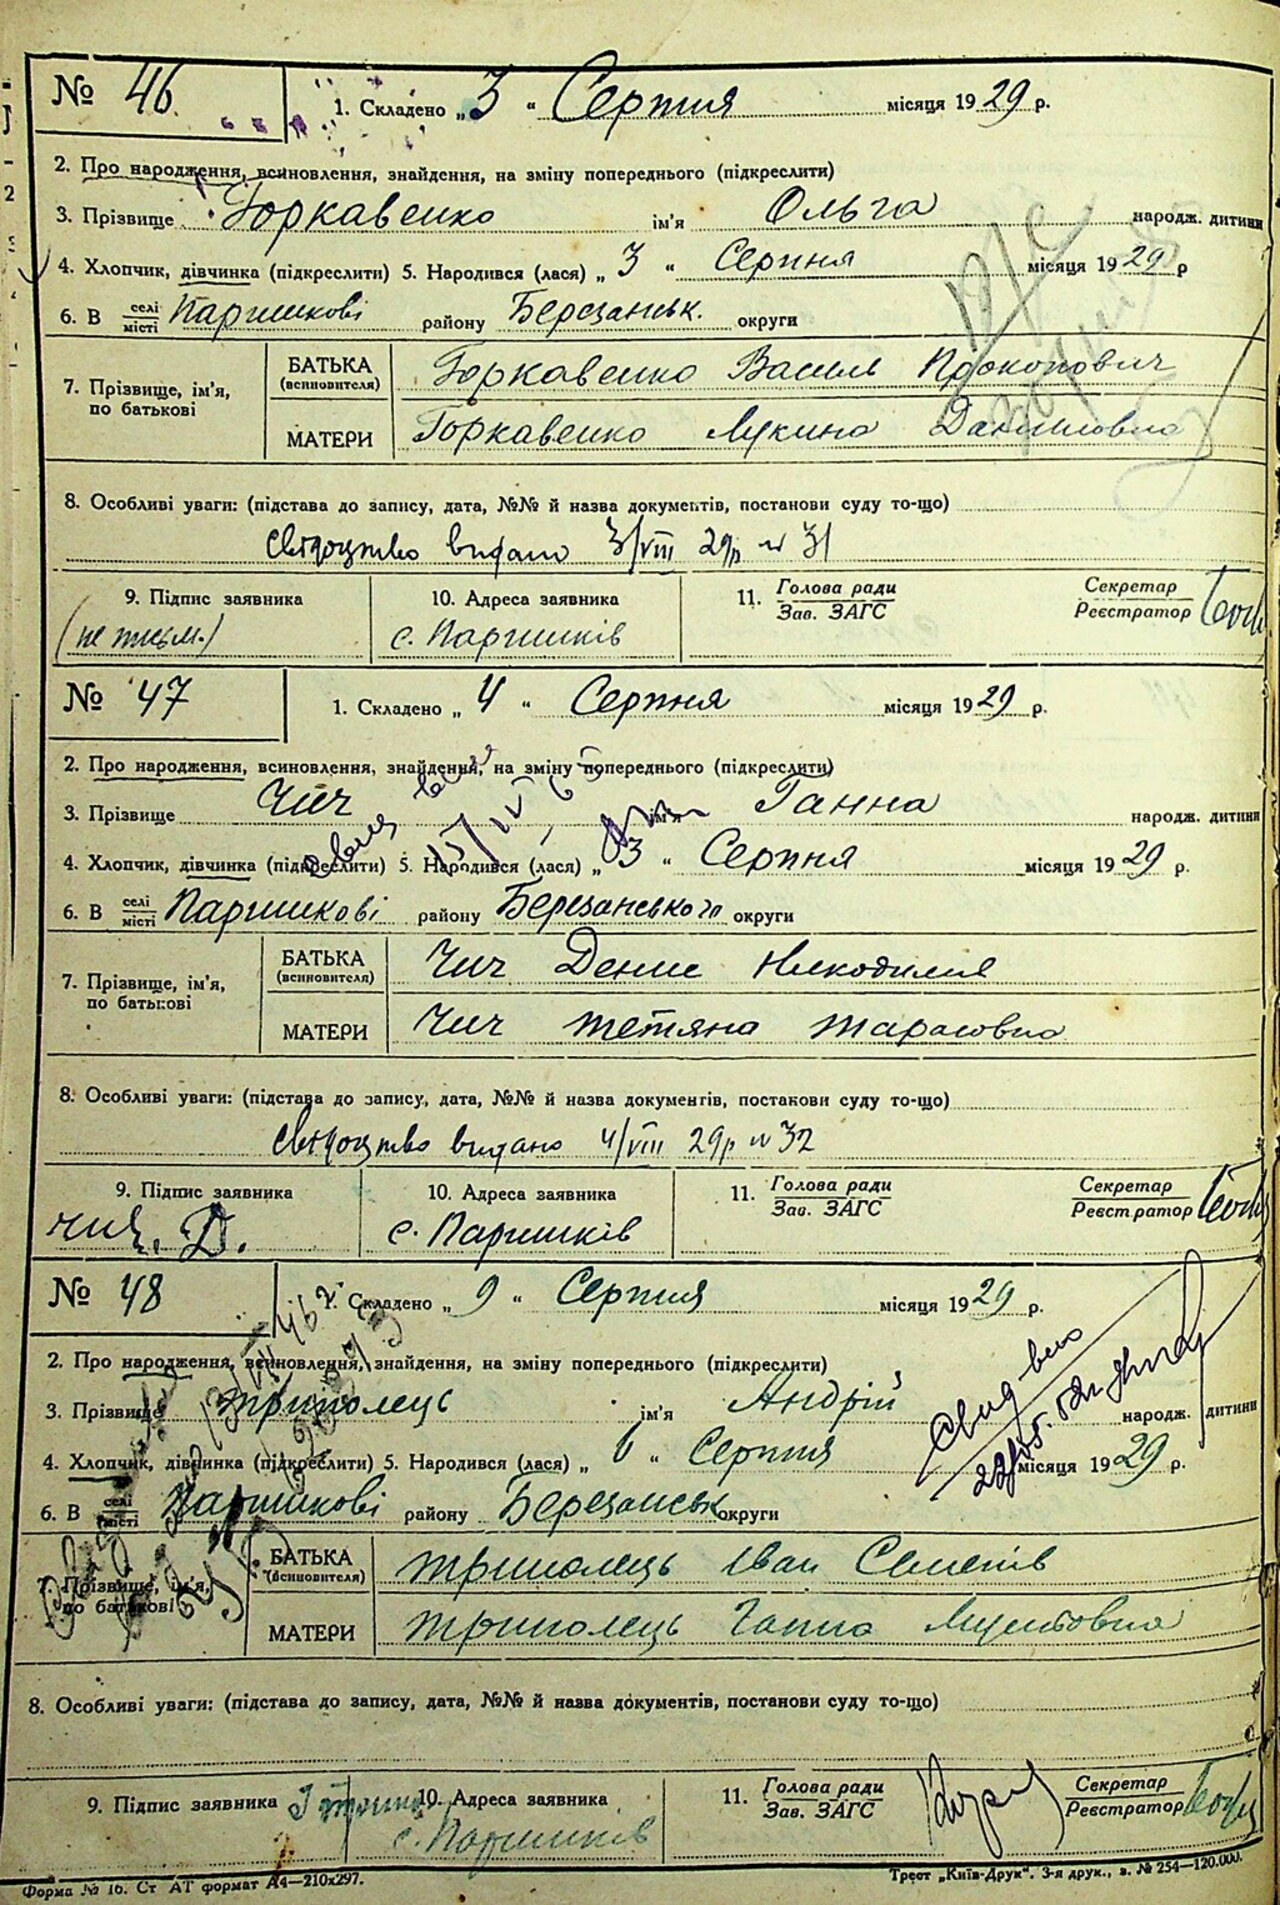 № 46
1. Складено „ 3 “ Серпня місяця 1929 р.
2. Про народження, всиновлення, знайдення, на зміну попереднього (підкреслити)
3. Прізвище Горкавенко ім'я Ольга народж. дитини
4. Хлопчик, дівчинка (підкреслити) 5. Народився (лася) „ 3 “ Серпня місяця 1929 р
6. В селі/місті Паришкові району Березанськ. округи
7. Прізвище, ім'я, по батькові
БАТЬКА (всиновителя) Горкавенко Василь Прокопович
МАТЕРИ Горкавенко Лукина Даниловна
8. Особливі уваги: (підстава до запису, дата, №№ й назва документів, постанови суду то-що)
свідоцтво видано 3/VIII 29р № 31
9. Підпис заявника 10. Адреса заявника 11. Голова ради/Зав. ЗАГС Секретар/Реєстратор
(не письм.) с. Паришків
№ 47
1. Складено „ 4 “ Серпня місяця 1929 р.
2. Про народження, всиновлення, знайдення, на зміну попереднього (підкреслити)
3. Прізвище Чич ім'я Ганна народж. дитини
4. Хлопчик, дівчинка (підкреслити) 5. Народився (лася) „ 3 “ Серпня місяця 1929 р.
6. В селі/місті Паришкові району Березанського округи
7. Прізвище, ім'я, по батькові
БАТЬКА (всиновителя) Чич Денис
МАТЕРИ Чич Тетяна Тарасовна
8. Особливі уваги: (підстава до запису, дата, №№ й назва документів, постанови суду то-що)
свідоцтво видано 4/VIII 29р № 32
9. Підпис заявника 10. Адреса заявника 11. Голова ради/Зав. ЗАГС Секретар/Реєстратор
Чич. Д. с. Паришків
№ 48
1. Складено „ 9 “ Серпня місяця 1929 р.
2. Про народження, всиновлення, знайдення, на зміну попереднього (підкреслити)
3. Прізвище Триполець ім'я Андрій народж. дитини
4. Хлопчик, дівчинка (підкреслити) 5. Народився (лася) „ 6 “ Серпня місяця 1929 р.
6. В селі/місті Паришкові району Березанськ округи
7. Прізвище, ім'я, по батькові
БАТЬКА (всиновителя) Триполець Іван Семенів
МАТЕРИ Триполець Ганна
8. Особливі уваги: (підстава до запису, дата, №№ й назва документів, постанови суду то-що)
9. Підпис заявника 10. Адреса заявника 11. Голова ради/Зав. ЗАГС Секретар/Реєстратор
с. Паришків
Форма № 16. Ст АТ формат А4—210х297.
Трест „Київ-Друк“. 3-я друк., з. № 254—120.000.